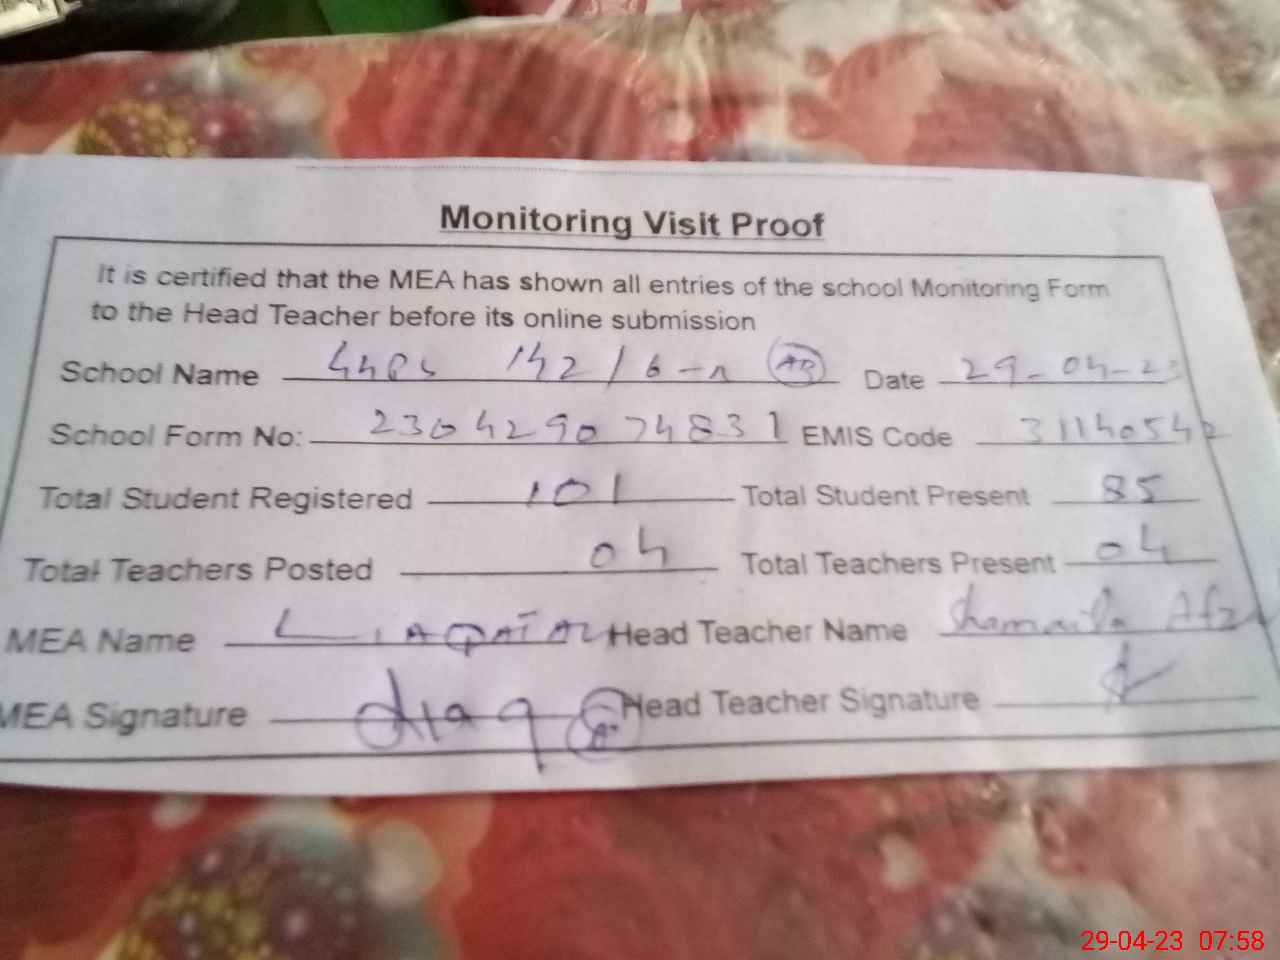 Monitoring Visit Proof
It is certified that the MEA has shown all entries of the school Monitoring Form
to the Head Teacher before its online submission
School Name 142/6-R AB Date 29-04-23
School Form No: 230429074831 EMIS Code 31140542
Total Student Registered 101 Total Student Present 85
Total Teachers Posted 04 Total Teachers Present 04
MEA Name LIAQAT ALI Head Teacher Name Shamaila
MEA Signature Head Teacher Signature
29-04-23 07:58